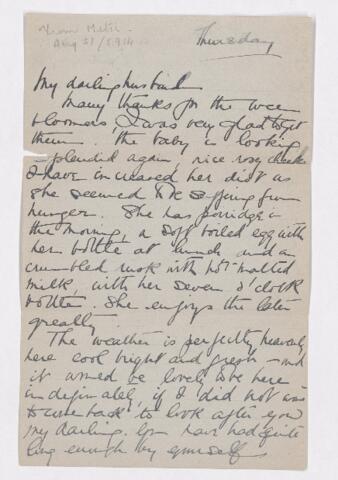 Aug 31/1914
Thursday
My darling husband
Many thanks for the wee
bloomers I was very glad to get
them. The baby is looking
splendid again, nice rosy cheeks
I have increased her diet as
she seemed to be suffering from
hunger. She has porridge in
the morning, a soft boiled egg with
her bottle at lunch and a
crumbled rusk with hot malted
milk, with her seven o'clock
bottle. She enjoys the later
greatly.
The weather is perfectly heavenly
here cool bright and fresh and
it would be lovely to be here
indefinitely, if I did not
to come back to look after you
my darling. You have had quite
long enough by yourself